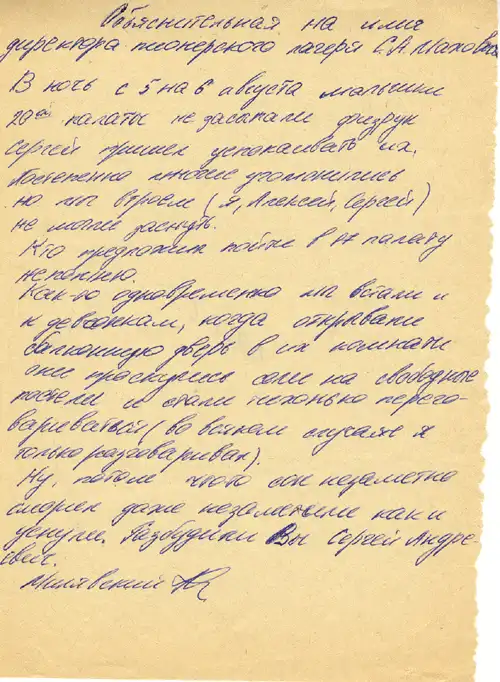 Объяснительная на имя
директора пионерского лагеря С.А.
В ночь с 5 на 6 августа мальчики
20ой палаты не засыпали физрук
Сергей пришел успокаивать их.
Постепенно многие угомонились
но мы втроем (я, Алексей, Сергей)
не могли заснуть.
Кто предложил пойти в 17 палату
не помню.
Как-то одновременно мы встали и
к девчонкам, когда открывали
балконную дверь в их комнате
они проснулись сели на свободные
постели и стали тихонько перего-
вариваться (во всяком случае я
только разговаривал).
Ну, потом что-то сон незаметно
сморил даже незаметили как и
уснули. Разбудили Вы Сергей Андре-
евич.